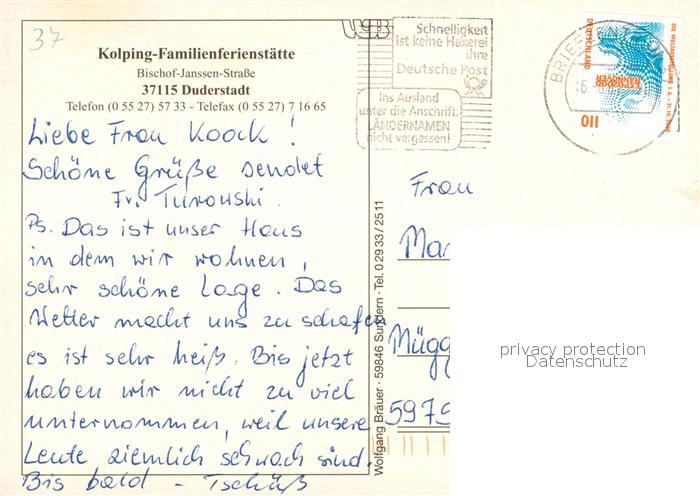 37
Kolping-Familienferienstätte
Bischof-Janssen-Straße
37115 Duderstadt
Telefon (0 55 27) 57 33 - Telefax (0 55 27) 7 16 65
Liebe Frau Koock !
Schöne Grüße sendet
Fr. Turowski.
Ps. Das ist unser Haus
in dem wir wohnen,
sehr schöne Lage. Das
Wetter macht uns zu schafen
es ist sehr heiß. Bis jetzt
haben wir nicht zu viel
unternommen, weil unsere
Leute ziemlich schwach sind.
Bis bald - Tschüß
Wolfgang Bräuer · 59846 Sundern · Tel. 0 29 33 / 25 11
Schnelligkeit
ist keine Hexerei
Ihre
Deutsche Post
Ins Ausland
unter die Anschrift:
LÄNDERNAMEN
nicht vergessen!
BRIE
DEUTSCHLAND
EXPO2000
HANNOVER
110
Frau
Ma
Mügg
5975
privacy protection
Datenschutz